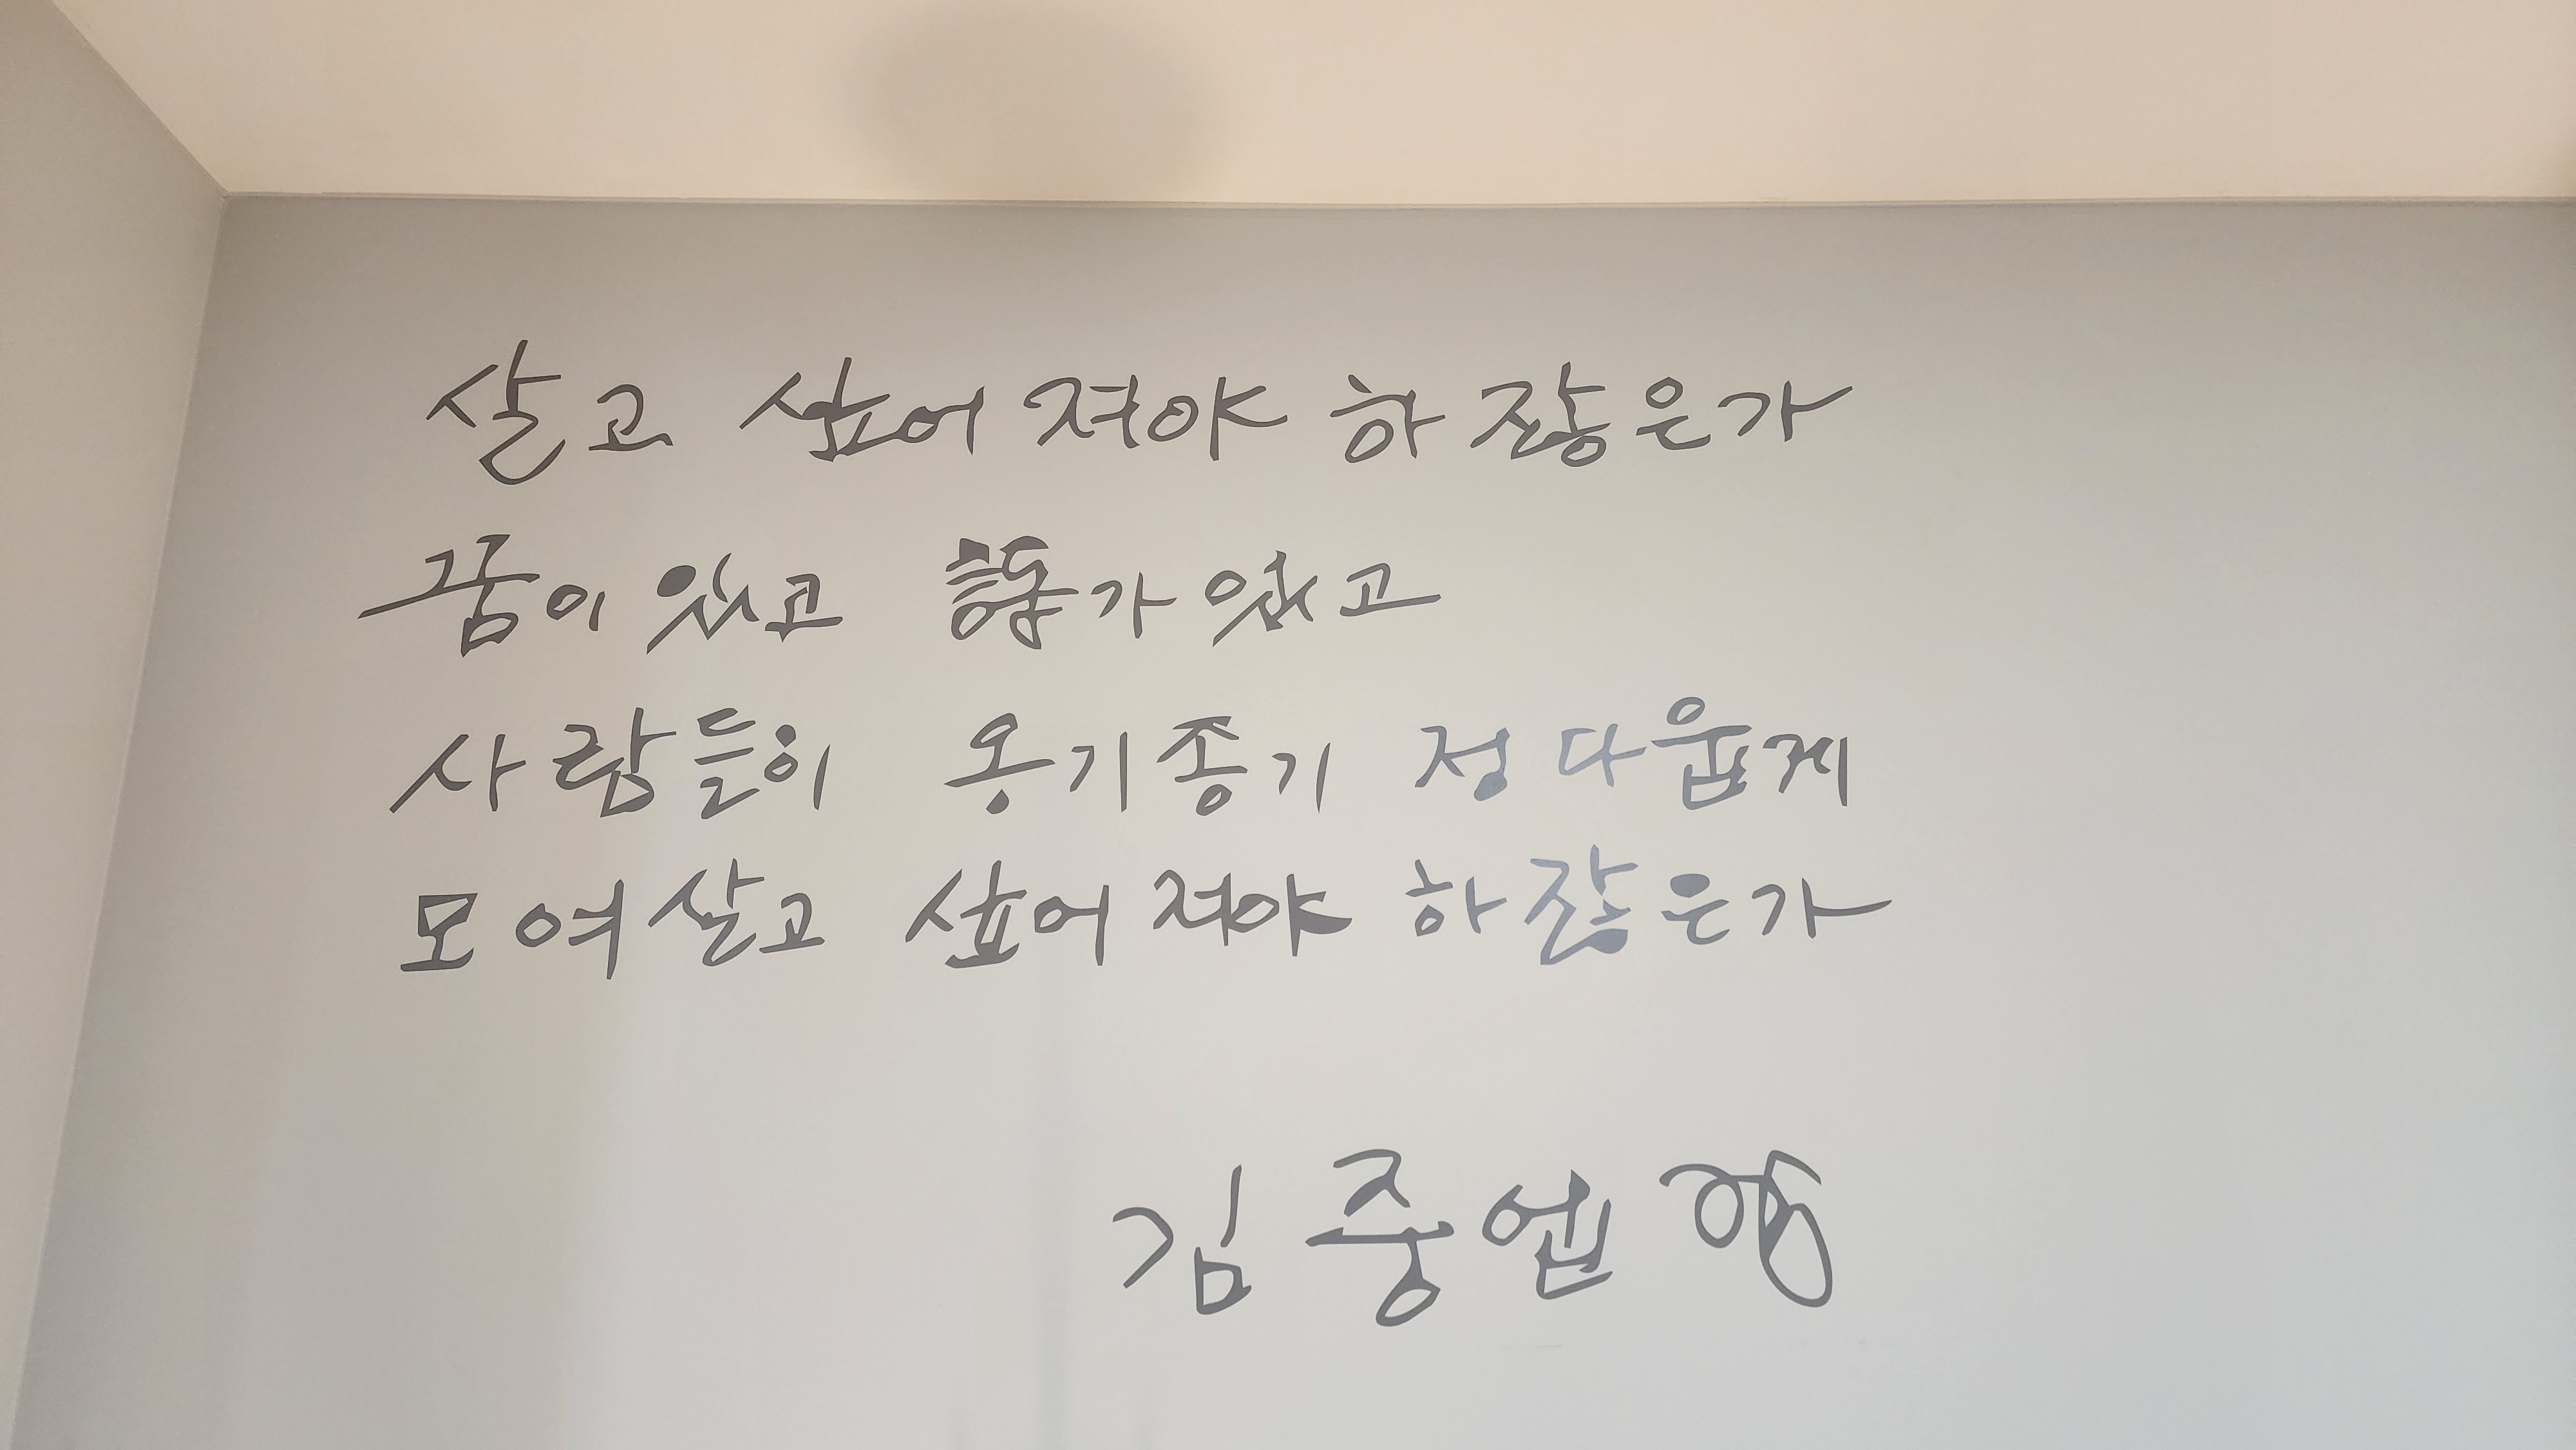 살고 싶어 져야 하 잖은가
꿈이 있고 詩가 있고
사람들이 옹기종기 정다웁게
모여살고 싶어 져야 하잖은가
김중업